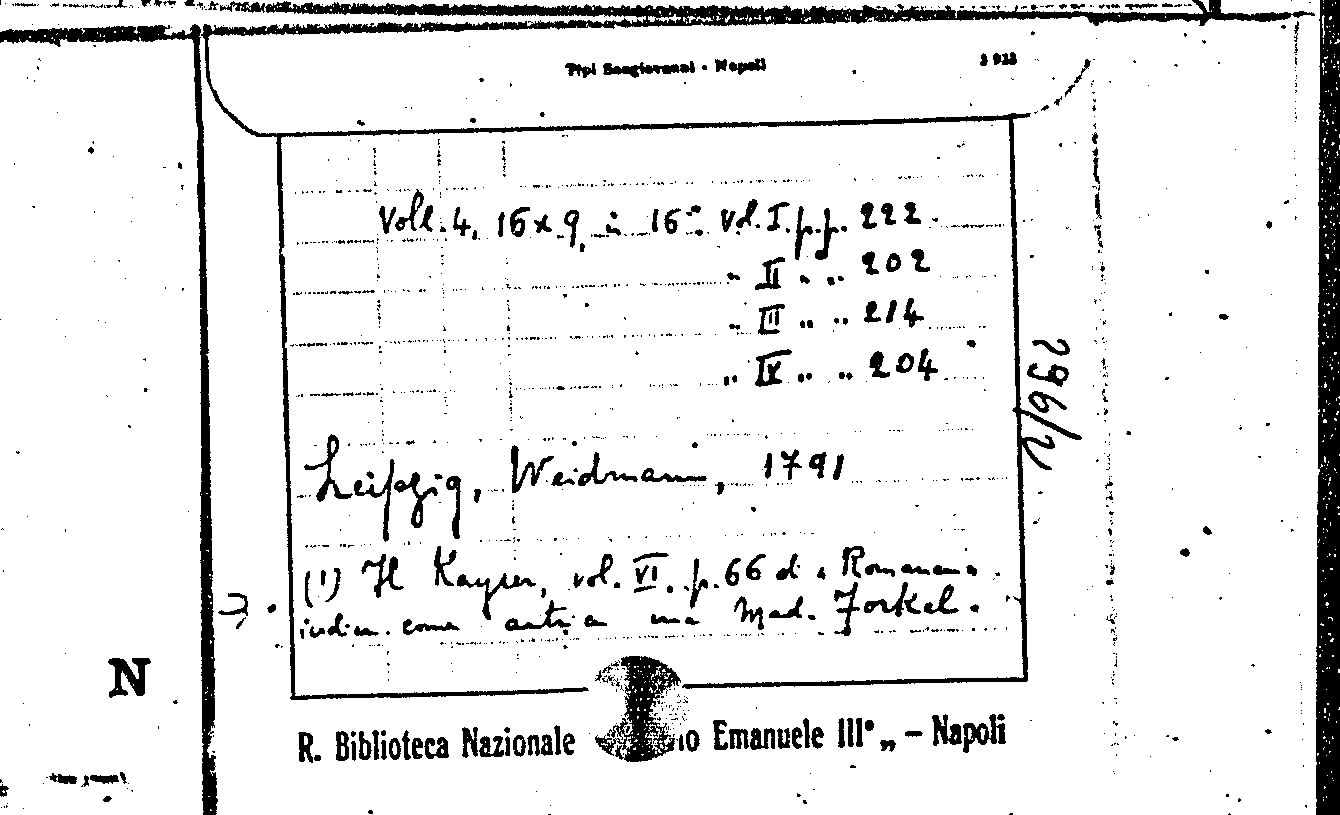 Tipi Sangiovanni - Napoli
Voll. 4, 16 x 9, in 16º. Vol. I. pp. 222.
„ II „ „ 202
„ III „ „ 214
„ IV „ „ 204
296/2
Leipzig, Weidmann, 1791
(1) Il Kayser, vol. VI. p. 66 d.
come una Mad. Forkel.
N
R. Biblioteca Nazionale Emanuele IIIº „ - Napoli